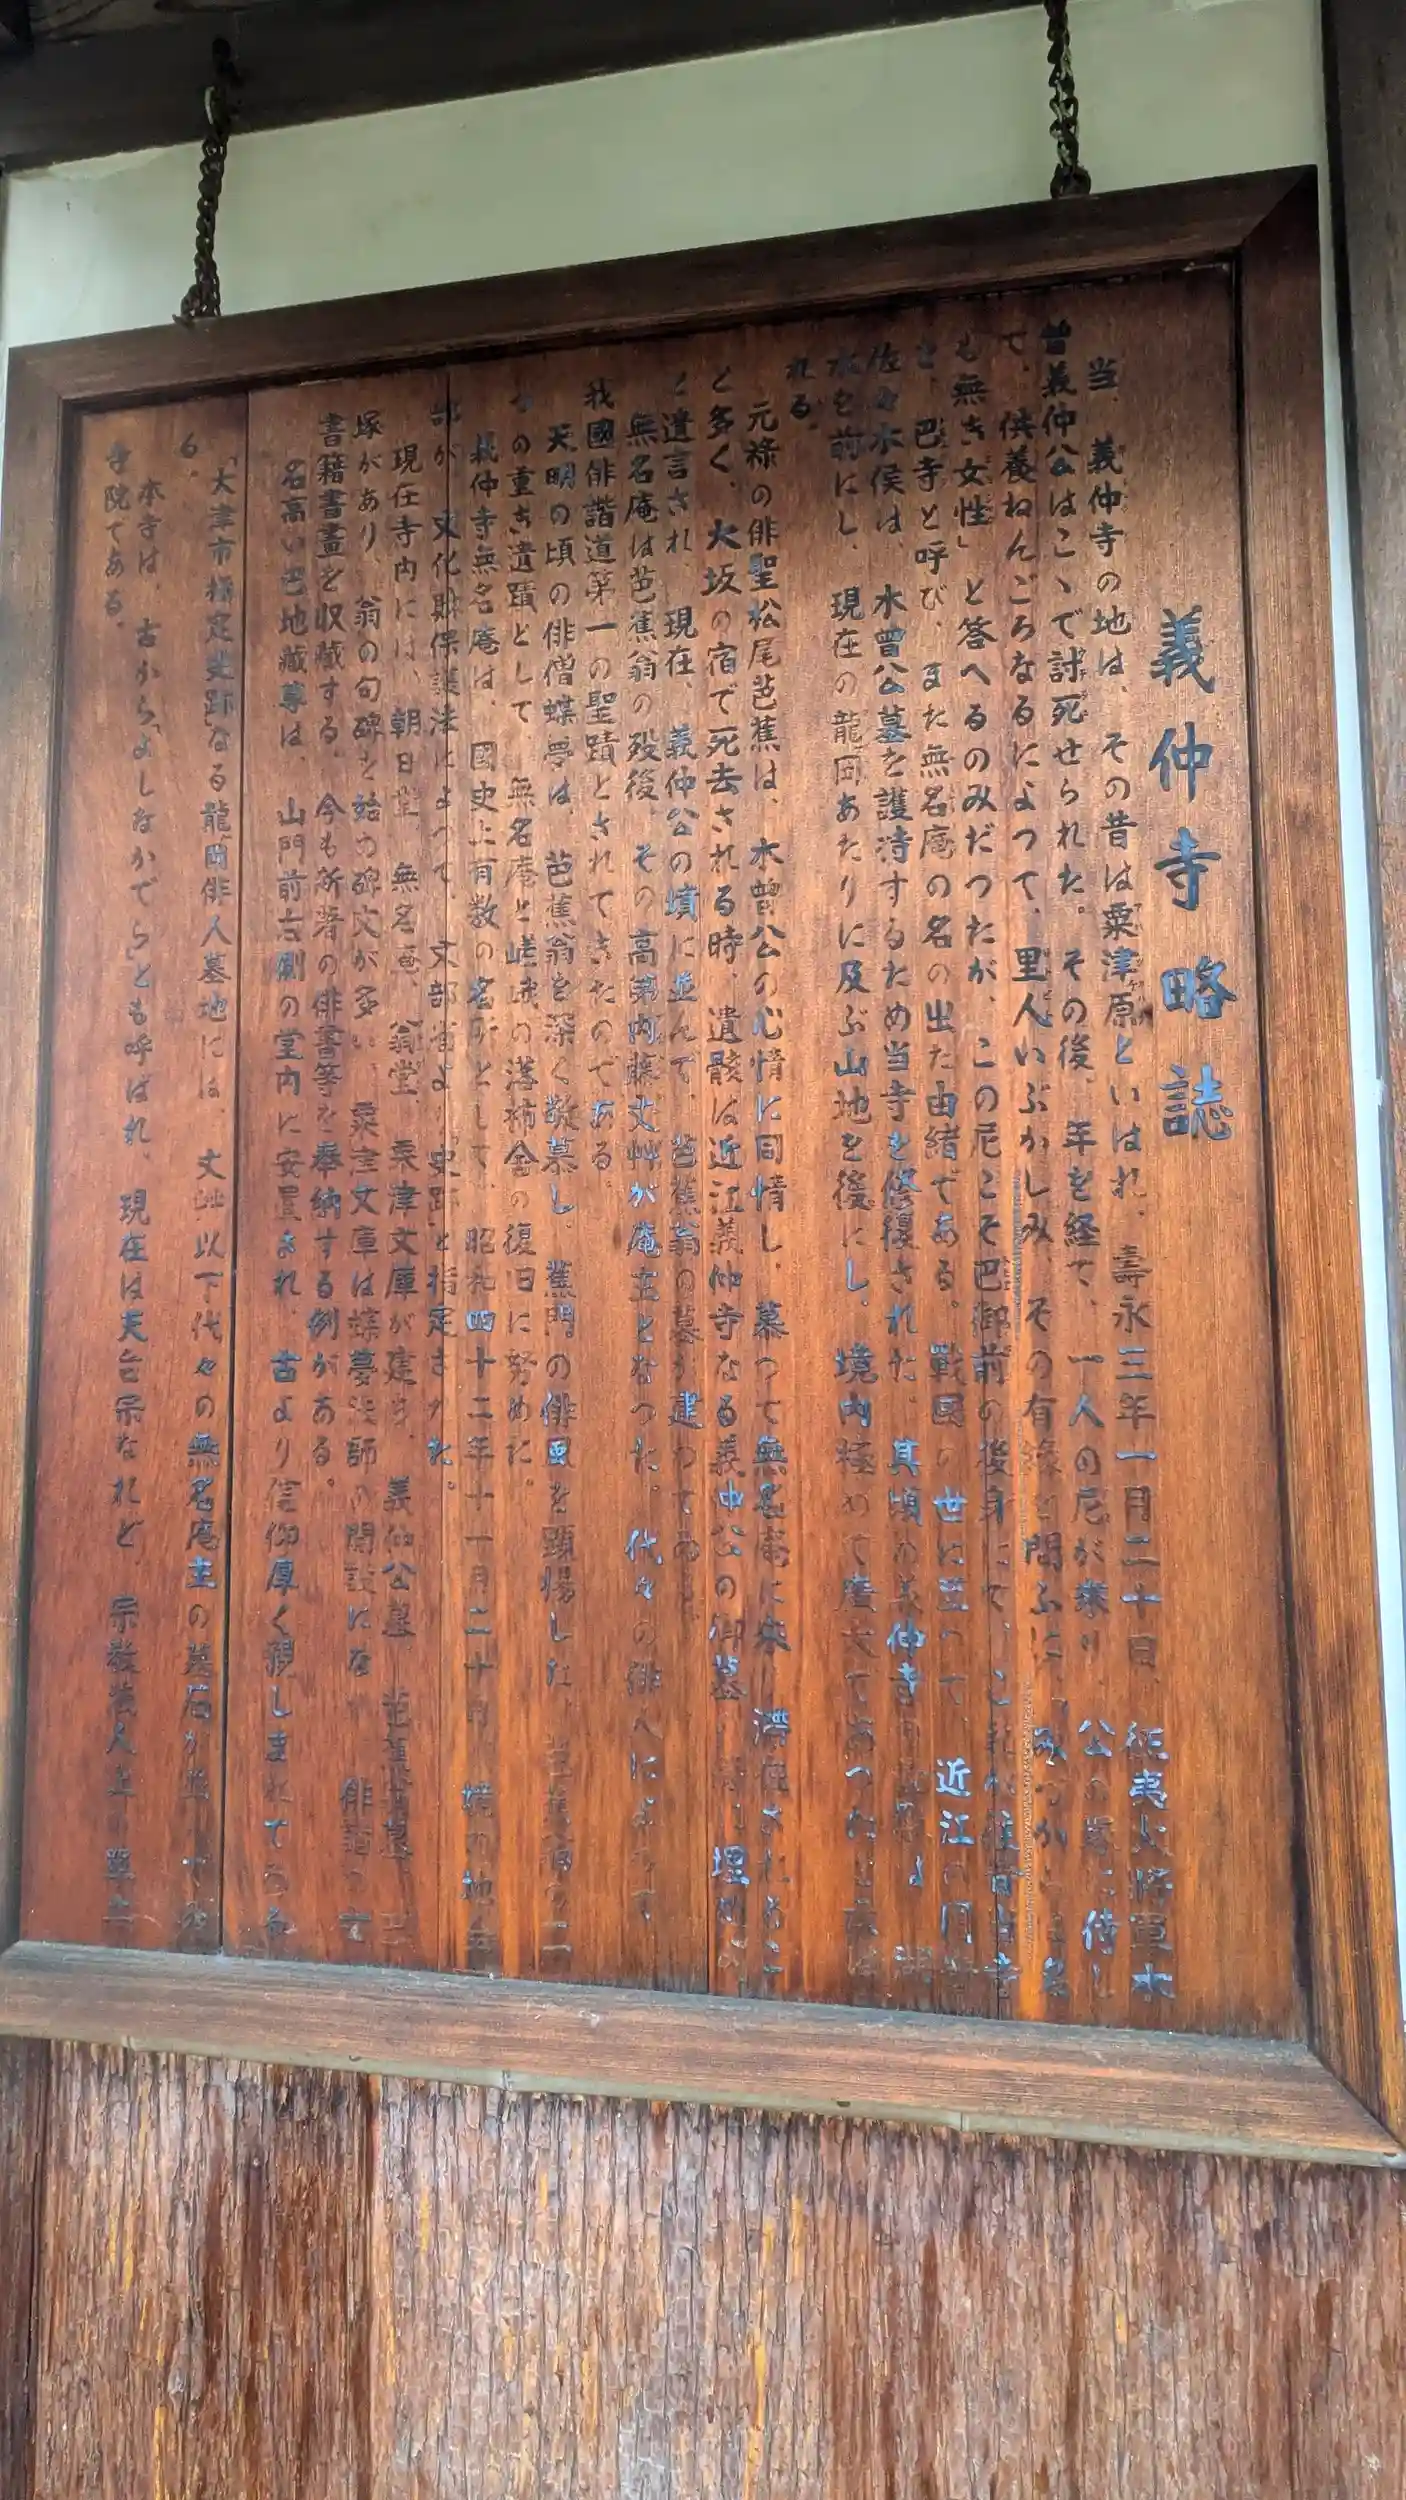 義仲寺略誌
当、義仲寺の地は、その昔は粟津原といはれ、壽永三年一月二十日、征夷大将軍木
曾義仲公はこゝで討死せられた。その後、年を経て、一人の尼が来り、公の塚に侍し
て、供養ねんごろなるによつて、里人いぶかしみ、その有縁を問ふに、みづからは名
も無き女性」と答へるのみだつたが、この尼こそ巴御前の後身にて、これより往昔当寺
を、巴寺と呼び、また無名庵の名の出た由緒である。戦國の世に至つて、近江の
佐々木侯は、木曾公墓を護持するため当寺を修復された。其頃の義仲寺
水を前にし、現在の龍岡あたりに及ぶ山地を後にし、境内極めて廣大であつた
れる。
元禄の俳聖松尾芭蕉は、木曾公の心情に同情し、慕つて無名庵に来り滞在されるこ
と多く、大坂の宿で死去される時、遺骸は近江義仲寺なる義仲公の御墓 埋め
と遺言され、現在、義仲公の墳に並んで、芭蕉翁の墓が建つてゐる
無名庵は芭蕉翁の歿後、その高弟内藤丈艸が庵主となつた。代々の俳人によつて
我國俳諧道第一の聖蹟とされてきたのである。
天明の頃の俳僧蝶夢は、芭蕉翁を深く敬慕し、蕉門の俳風を顕揚した。芭蕉翁の二
つの重き遺蹟として、無名庵と嵯峨の落柿舎の復旧に努めた。
義仲寺無名庵は、國史上有数の名所として、昭和四十二年十一月二十日、境の地全
部が、文化財保護法によつて、文部省より「史跡」と指定された。
現在寺内には、朝日堂、無名庵、翁堂、粟津文庫が建ち、義仲公墓、芭蕉翁墓、巴
塚があり、翁の句碑を始め碑文が多い。粟津文庫は蝶夢法師の開設になり、俳諧の古
書籍書畫を収蔵する。今も新著の俳書等を奉納する例がある。
名高い巴地蔵尊は、山門前右側の堂内に安置され、古より信仰厚く親しまれてゐる
「大津市指定史跡」なる龍岡俳人墓地には、丈艸以下代々の無名庵主の墓石が並んでゐ
る。
本寺は、古から「よしなかでら」とも呼ばれ、現在は天台宗なれど、宗教法人上の単立
寺院である。